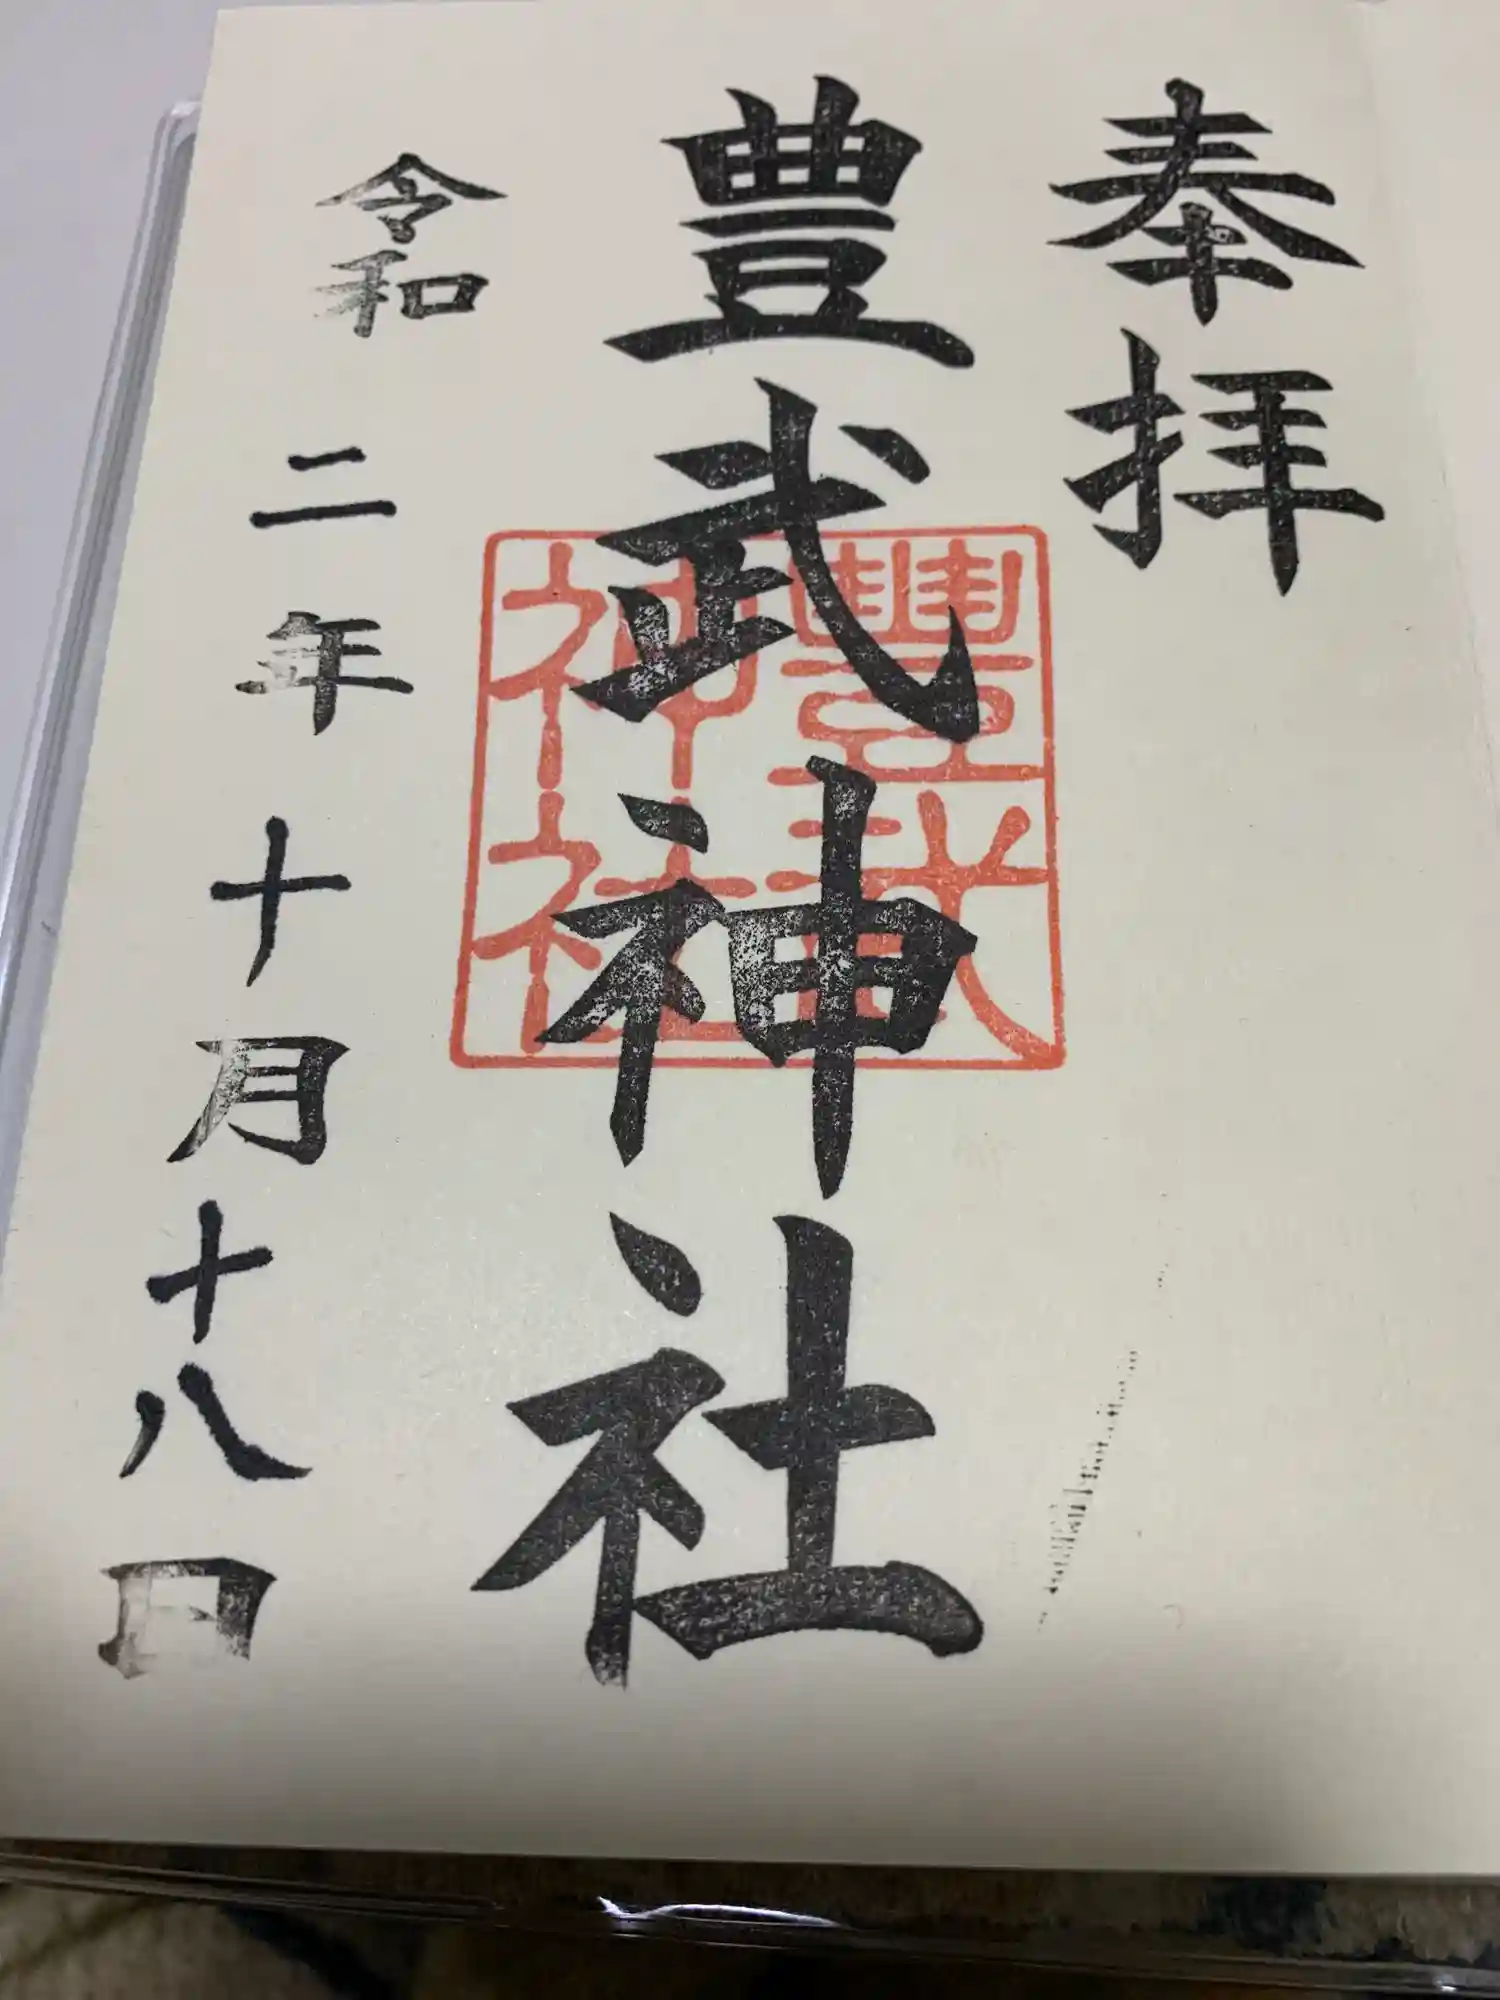 奉拝
豊武神社
豐武
神社
令和二年十月十八日